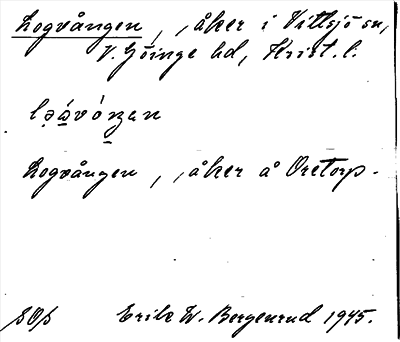 Logvången, , åker i Vittsjö sn,
V. Göinge hd, Krist. l.
Logvången, , åker å Oretorp.
Erik W. Bergenrud 1945.